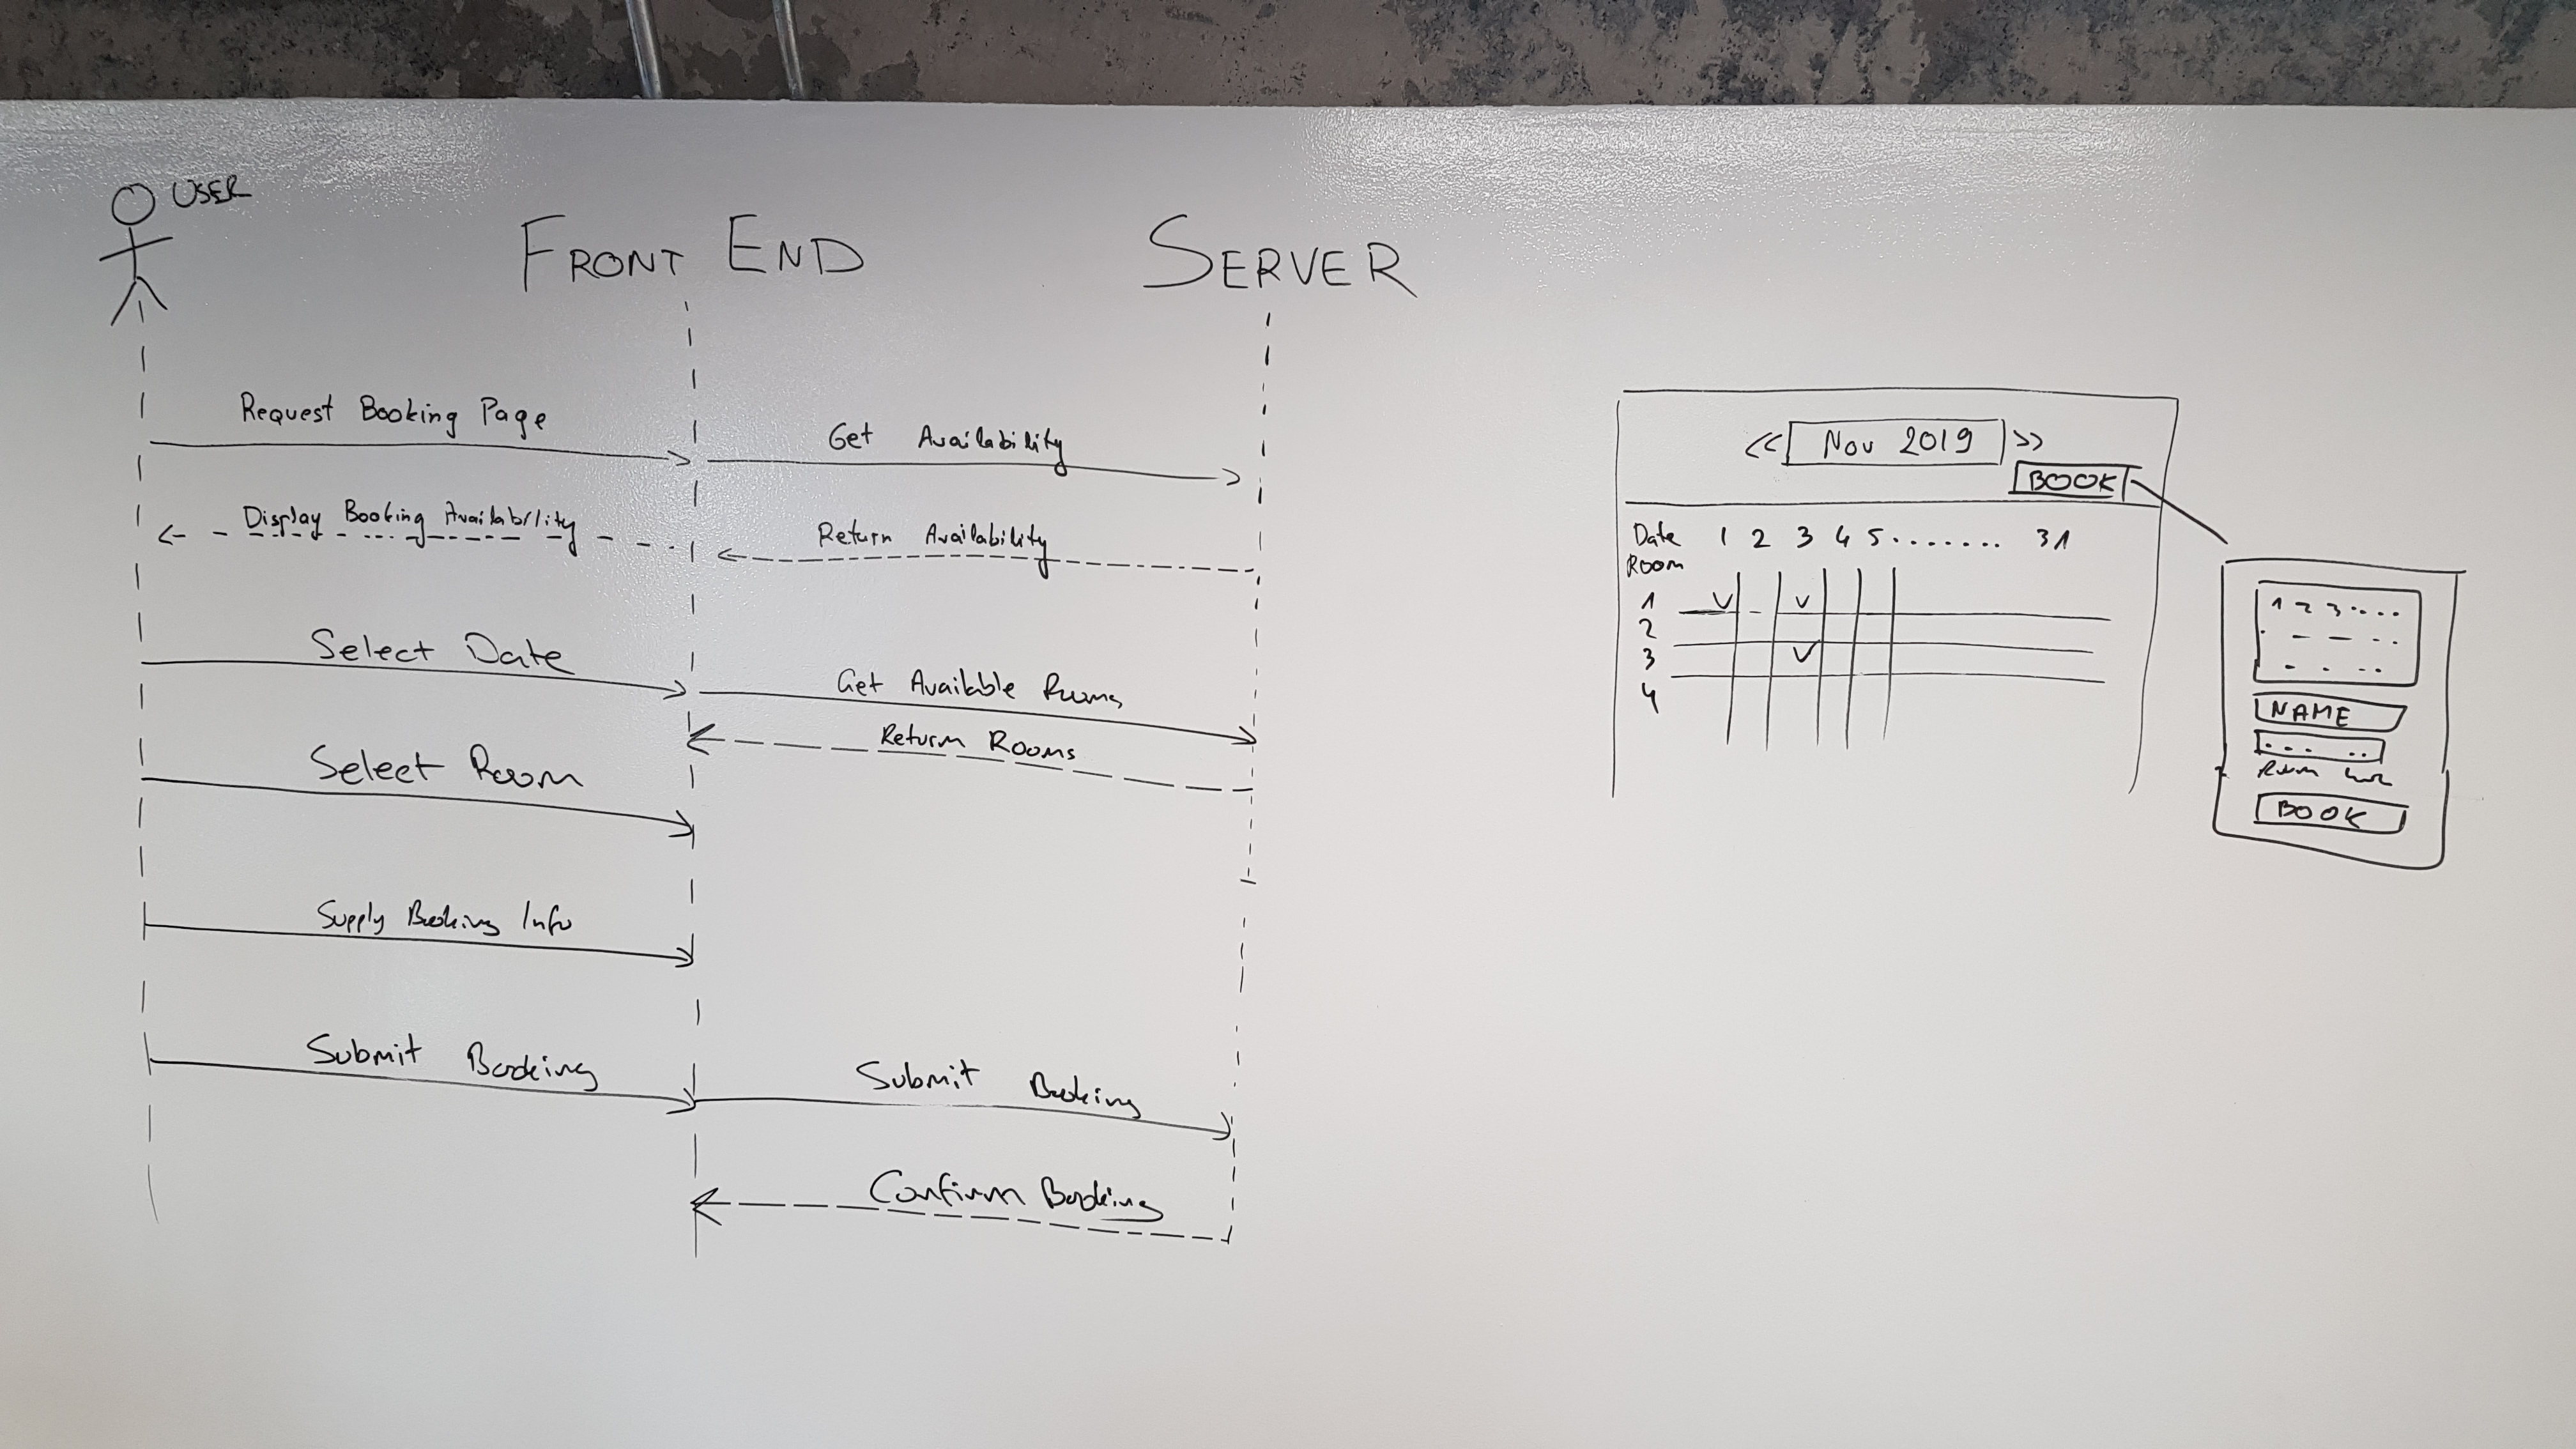 USER
FRONT END
SERVER
Request Booking Page
Get Availability
Display Booking Availability
Return Availability
Select Date
Get Available Rooms
Return Rooms
Select Room
Supply Booking Info
Submit Booking
Submit Booking
Confirm Booking
<< Nov 2019 >>
BOOK
Date 1 2 3 4 5........ 31
Room
1 V V
2
3 V
4
1 2 3....
NAME
Room
BOOK